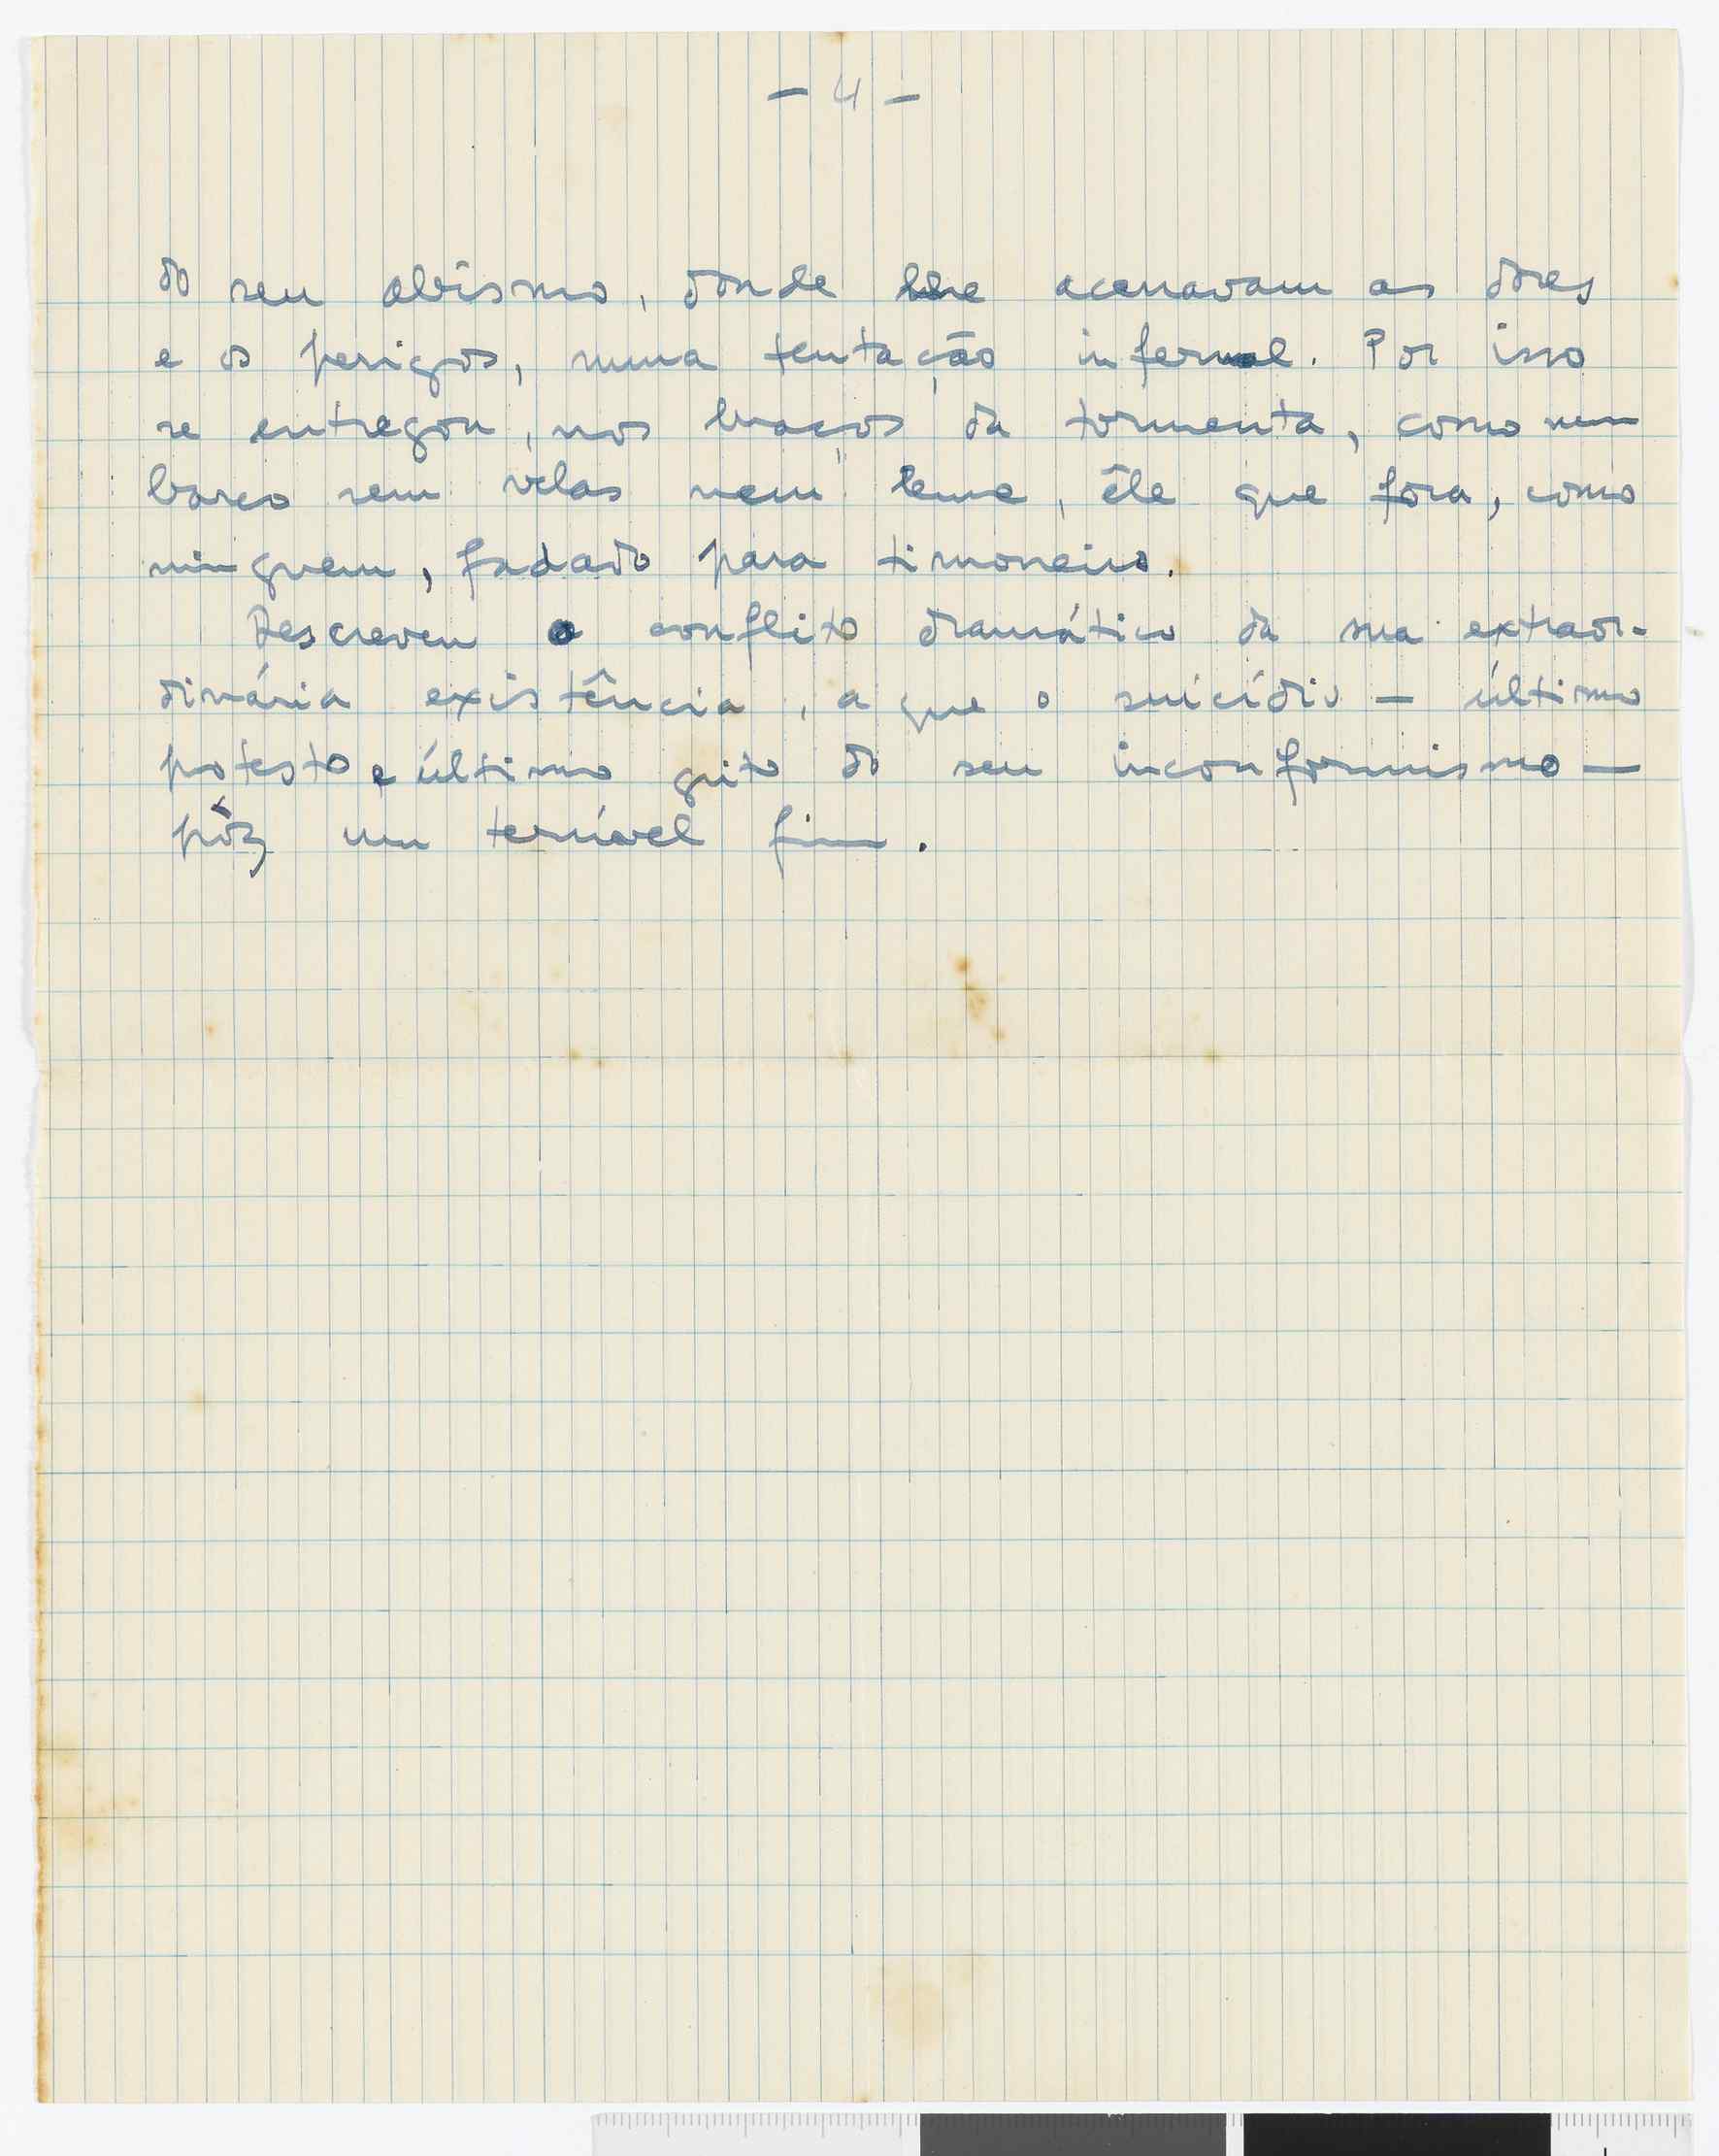 - 4 -
do seu abismo, donde lhe acenavam as dores
e os perigos, numa tentação infernal. Por isso
se entregou, nos braços da tormenta, como um
barco sem velas nem leme, êle que fora, como
ninguem, fadado para timoneiro.
Descreveu o conflito dramático da sua extraor-
dinária existência, a que o suicídio — último
protesto e último grito do seu inconformismo —
pôz um terrível fim.